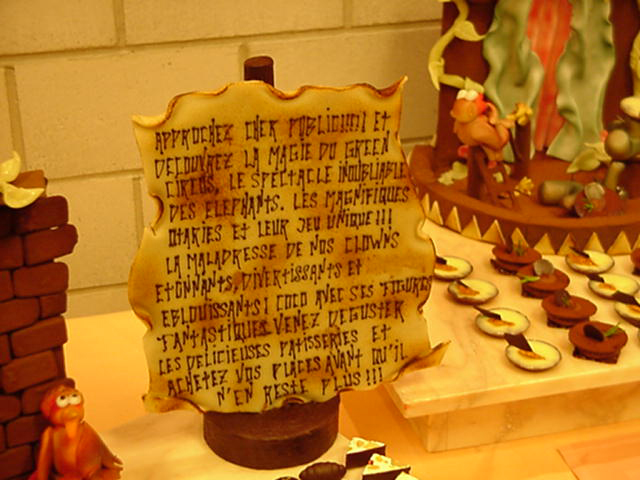 APPROCHEZ CHER PUBLIC!!!! ET
DECOUVREZ LA MAGIE DU GREEN
CIRCUS, LE SPECTACLE INOUBLIABLE
DES ELEPHANTS. LES MAGNIFIQUES
OTARIES ET LEUR JEU UNIQUE!!!
LA MALADRESSE DE NOS CLOWNS
ETONNANTS, DIVERTISSANTS ET
EBLOUISSANTS! COCO AVEC SES "FIGURES
FANTASTIQUES. VENEZ DEGUSTER
LES DELICIEUSES PATISSERIES ET
ACHETEZ VOS PLACES AVANT QU'IL
N'EN RESTE PLUS!!!